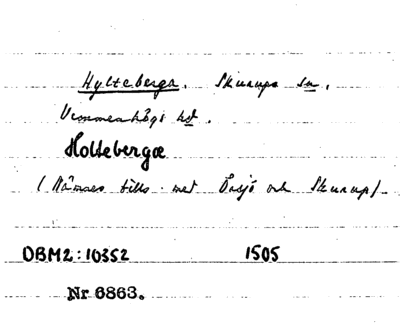 Hylteberga. Skurups sn.
Vemmenhögs hd.
Holtebergæ
(Nämnes tills. med Örsjö och Skurup)
DBM2:10352 1505
Nr 6863.